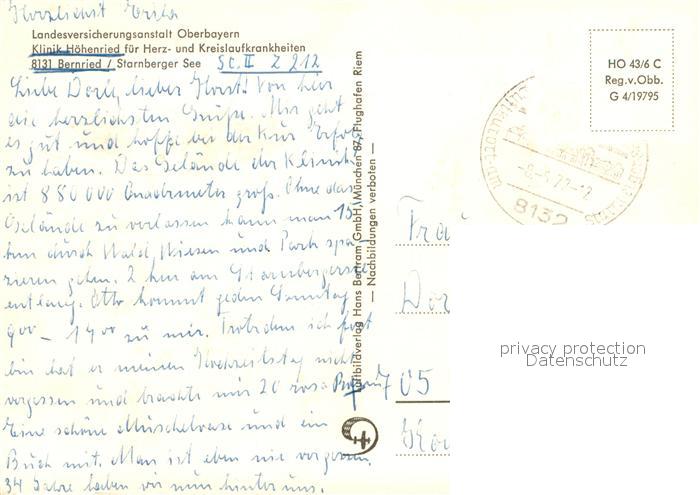 Herzlichst Erika
Landesversicherungsanstalt Oberbayern
Klinik Höhenried für Herz- und Kreislaufkrankheiten
8131 Bernried / Starnberger See
St. II Z 212
Liebe Dorle, lieber Horst! Von hier
die herzlichsten Grüße. Mir geht
es gut und hoffe bei der Kur Erfolg
zu haben. Das Gelände der Klinik
ist 880 000 Quadrmeter groß. Ohne das
Gelände zu verlassen kann man 15
km durch Wald, Wiesen und Park spa-
zieren gehen. 2 km am Starnbergersee
entlang. Otto kommt jeden Sonntag
9 00 – 19 00 zu mir. Trotzdem ich fort
bin hat er meinen Hochzeitstag nicht
vergessen und brachte mir 20 rosa
Eine schöne Muschelvase und ein
Buch mit. Man ist eben nie vergessen.
34 Jahre haben wir nun hinter uns.
Luftbildverlag Hans Bertram GmbH, München 87, Flughafen Riem
— Nachbildungen verboten —
HO 43/6 C
Reg.v.Obb.
G 4/19795
8132
Frau
Dor
Ü5
privacy protection
Datenschutz